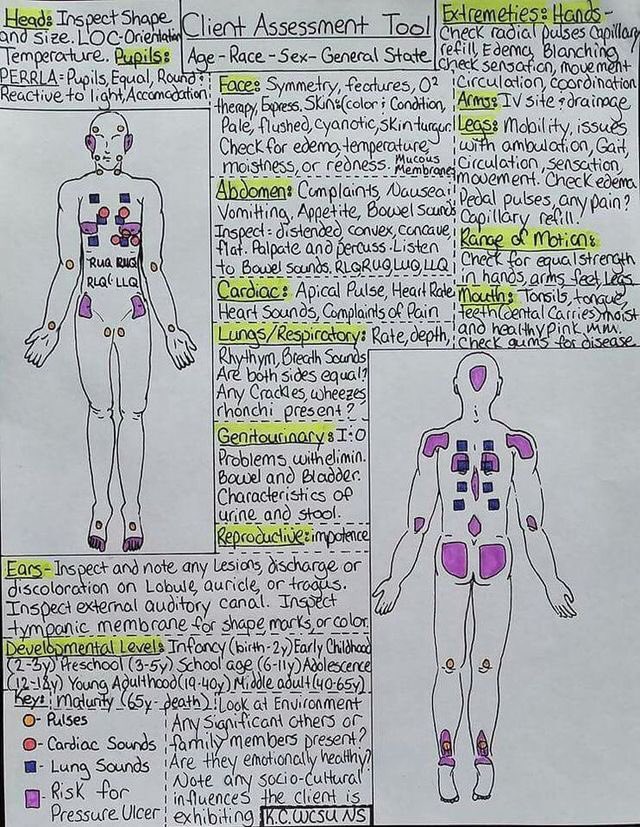 Head: Inspect Shape
and size. LOC-Orientation
Temperature. Pupils:
PERRLA=Pupils, Equal, Round;
Reactive to light, Accomadation
Client Assessment Tool
Age - Race - Sex - General State
Extremeties: Hands-
Check radial pulses Capillary
refill, Edema, Blanching,
Check sensation, movement
Circulation, coordination
Arms: IV site; drainage,
Legs: Mobility, issues
with ambulation, Gait,
Circulation, sensation,
movement. Check edema.
Pedal pulses, any pain?
Capillary refill.
Range of Motion:
Check for equal strength
in hands, arms feet, legs.
Mouth: Tonsils, tongue,
teeth (dental Carries) moist
and healthy pink m.m.
Check gums for disease.
Face: Symmetry, features, O²
therapy, Express. Skin:(color; Condition,
Pale, flushed, cyanotic, skin turgur.
Check for edema, temperature,
moistness, or redness. Mucous
Membranes
Abdomen: Complaints, Nausea;
Vomitting, Appetite, Bowel sounds
Inspect = distended, convex, concave,
flat. Palpate and percuss. Listen
to Bowel sounds, RLQ, RUQ, LUQ, LLQ
Cardiac: Apical Pulse, Heart Rate
Heart Sounds, Complaints of Pain
Lungs/Respiratory: Rate, depth,
Rhythym, Breath Sounds
Are both sides equal?
Any Crackles, wheezes
rhonchi present?
Genitourinary: I:O
Problems with elimin.
Bowel and Bladder.
Characteristics of
urine and stool.
Reproductive: impotence
RUQ
RLQ LLQ
Ears- Inspect and note any Lesions, discharge or
discoloration on Lobule, auricle, or tragus.
Inspect external auditory canal. Inspect
tympanic membrane for shape marks, or color.
Developmental Level: Infancy (birth-2y) Early Childhood
(2-3y) Preschool (3-5y) School age (6-11y) Adolescence
(12-18y) Young Adulthood (19-40y) Middle adult (40-65y)
Maturity (65y-death)
Key:
Pulses
Cardiac Sounds
Lung Sounds
Risk for
Pressure Ulcer
Look at Environment
Any significant others or
family members present?
Are they emotionally healthy?
Note any socio-cultural
influences the client is
exhibiting K.C. WCSU NS